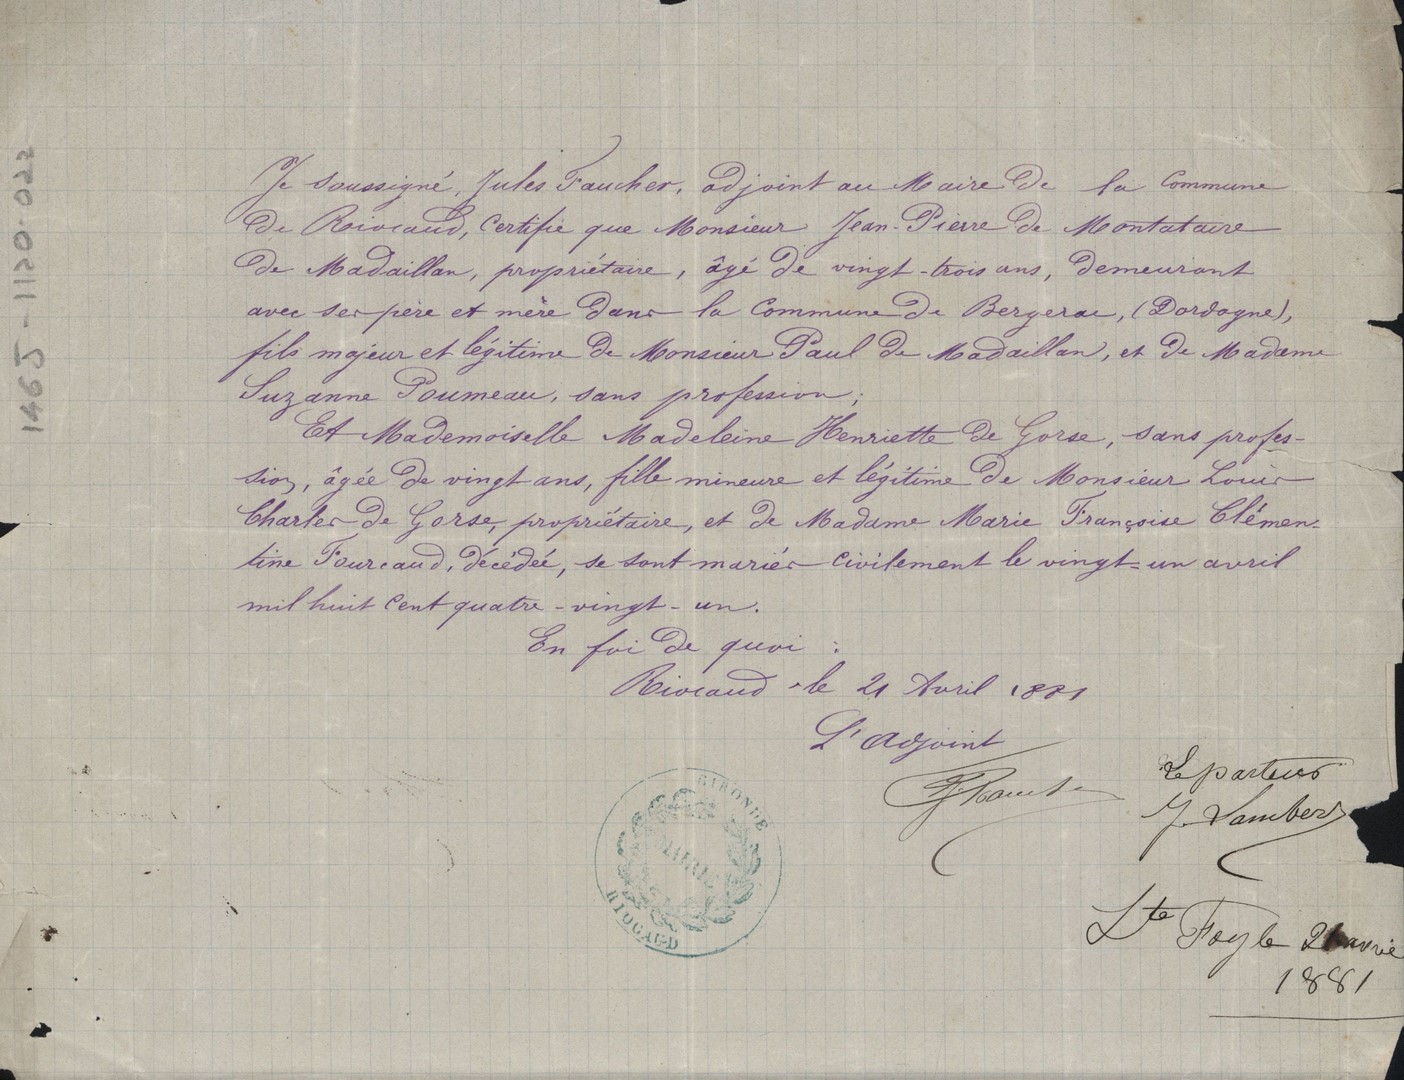 Je soussigné, Jules Faucher, adjoint au Maire de la commune
de Riocaud, certifie que Monsieur Jean-Pierre de Montataire
de Madaillan, propriétaire, âgé de vingt-trois ans, demeurant
avec ses père et mère dans la commune de Bergerac, (Dordogne),
fils majeur et légitime de Monsieur Paul de Madaillan, et de Madame
Suzanne Poumeau, sans profession;
Et Mademoiselle Madeleine Henriette de Gorse, sans profes-
sion, âgée de vingt ans, fille mineure et légitime de Monsieur Louis
Charles de Gorse, propriétaire, et de Madame Marie Françoise Clémen-
tine Fourcaud, décédée, se sont mariés civilement le vingt-un avril
mil huit cent quatre-vingt-un.
En foi de quoi :
Riocaud le 21 Avril 1881
L'adjoint
Le pasteur
GIRONDE
MAIRIE
RIOCAUD
Ste Foy le 21 avril
1881
1465-1120.023